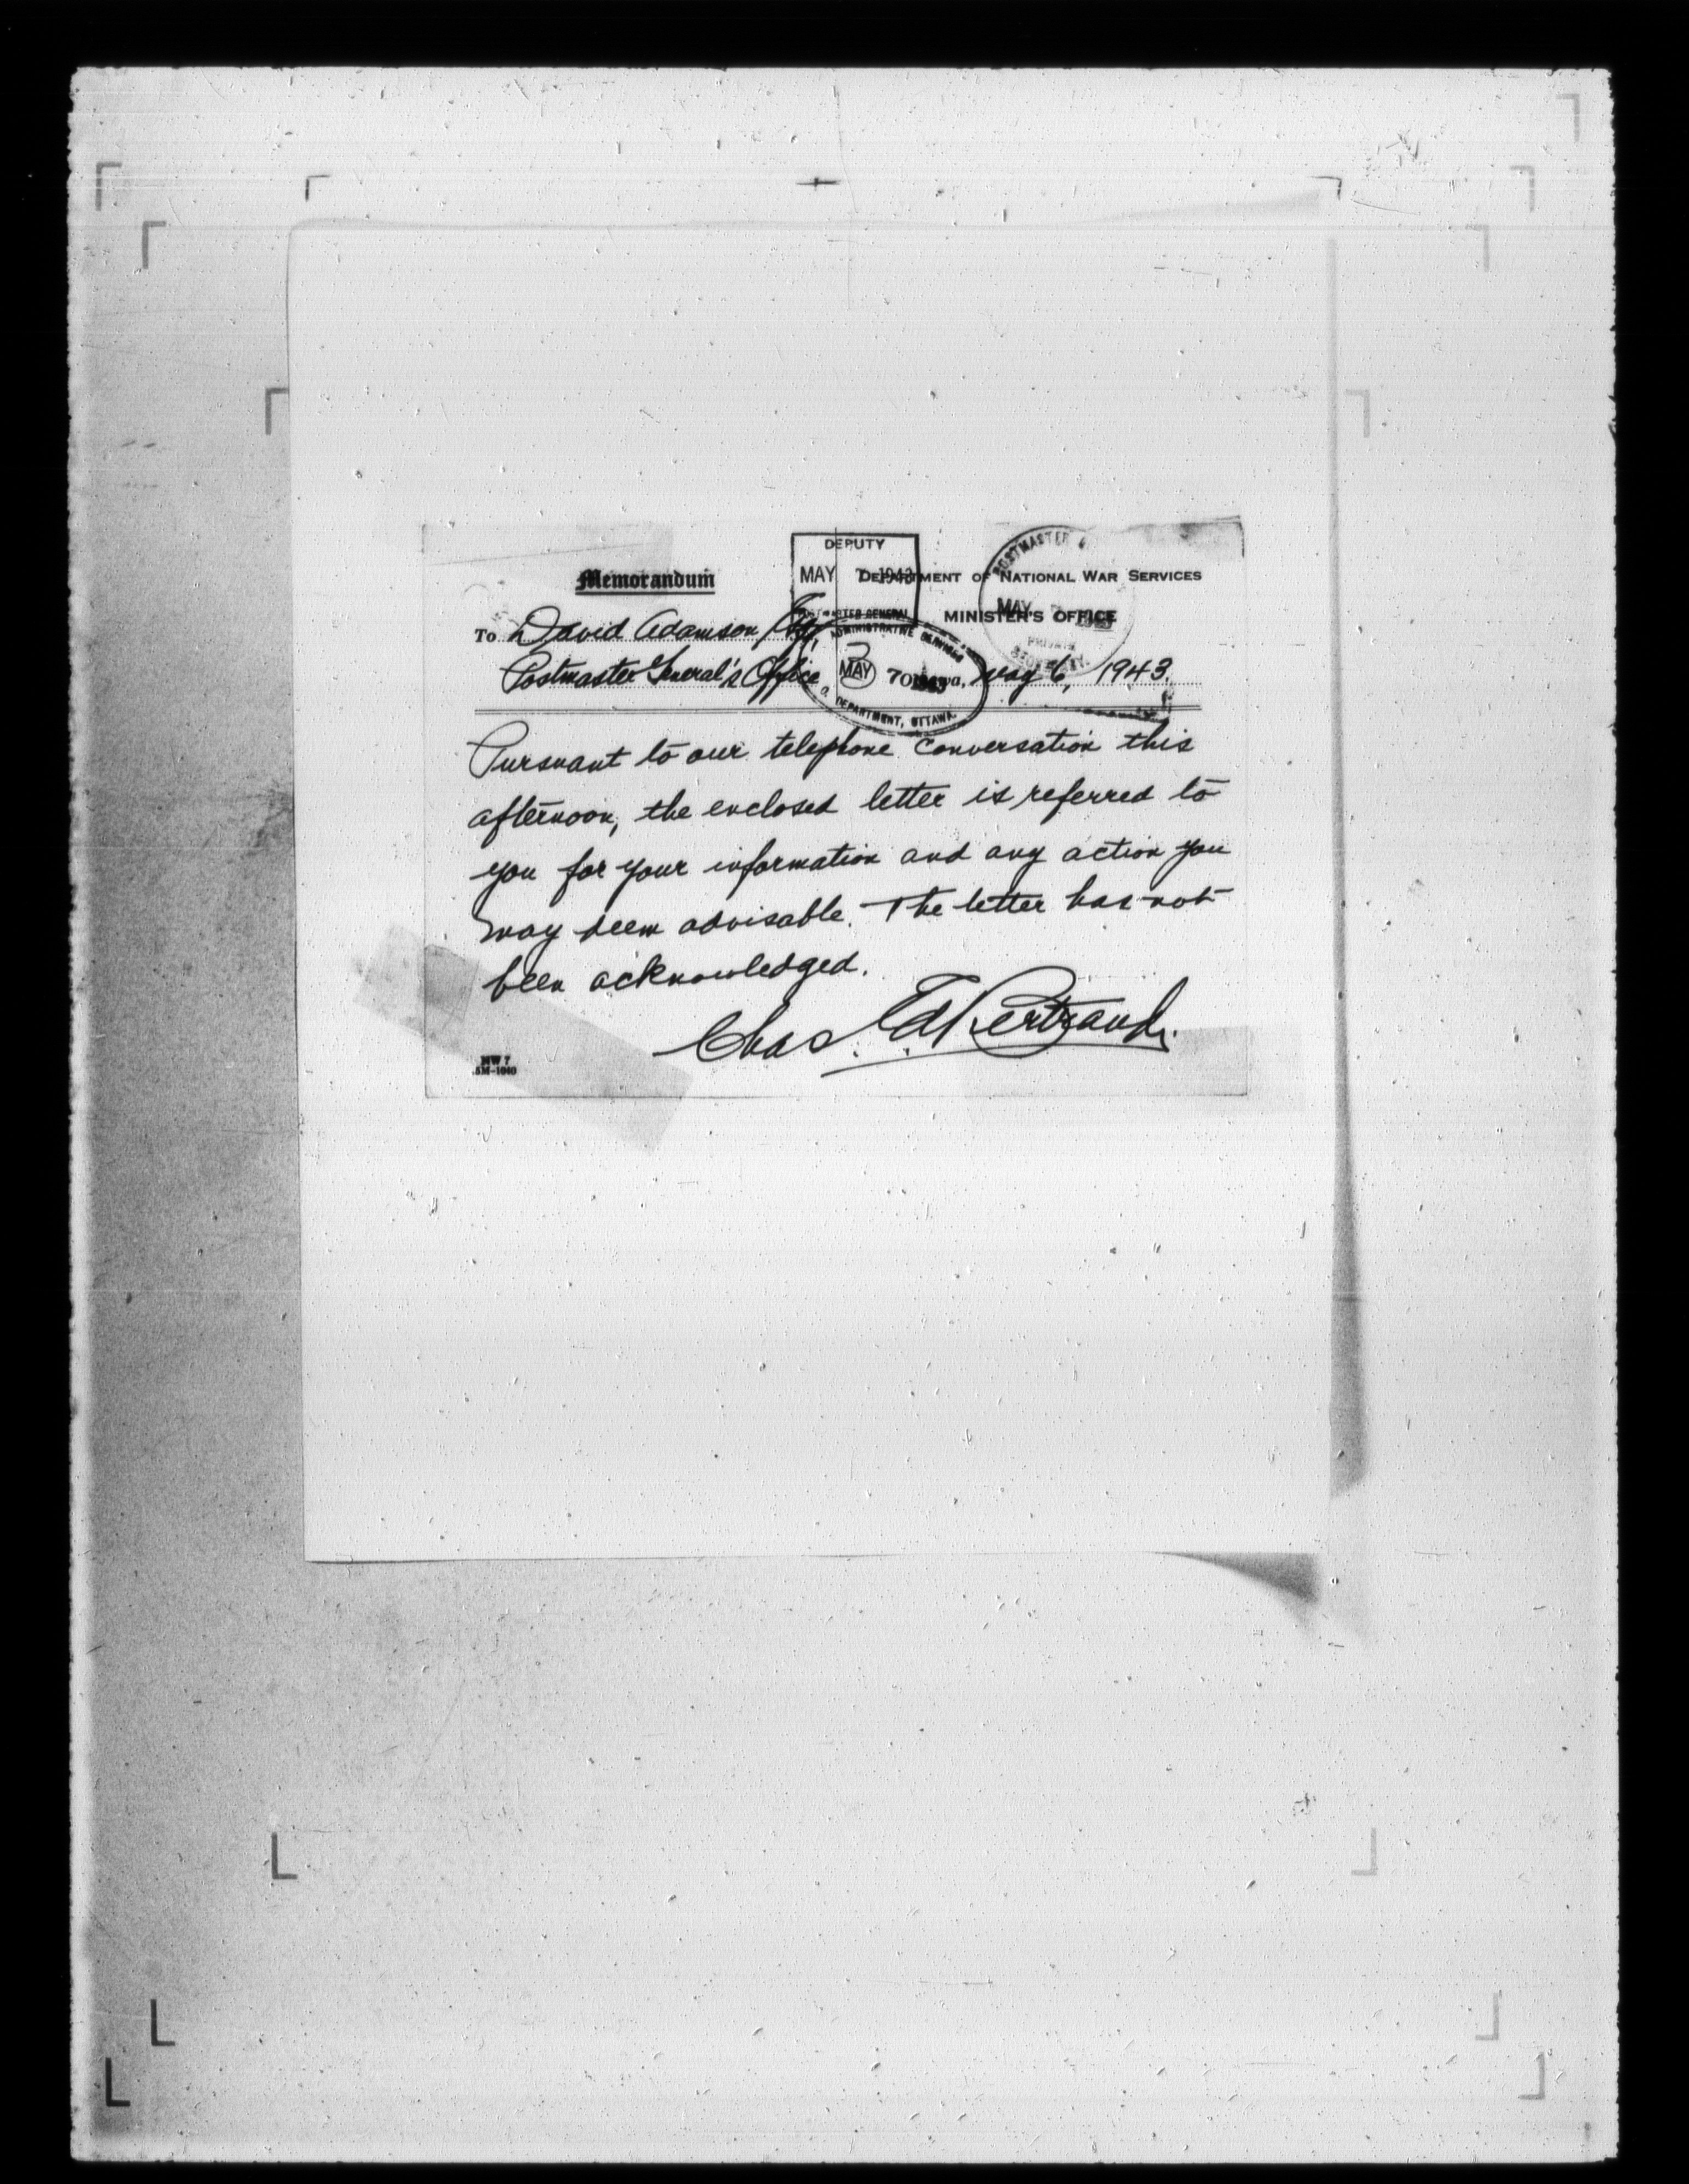 DEPUTY
MAY 7 1943
POSTMASTER GENERAL
Memorandum
DEPARTMENT OF NATIONAL WAR SERVICES
MINISTER'S OFFICE
POSTMASTER
MAY
PRIVATE
SECRETARY
To David Adamson Esq,
ADMINISTRATIVE SERVICES
MAY 7 1943
DEPARTMENT, OTTAWA.
Postmaster General's Office
Ottawa, May 6, 1943.
Pursuant to our telephone conversation this
afternoon, the enclosed letter is referred to
you for your information and any action you
may deem advisable. The letter has not
been acknowledged.
Chas. Ed Bertrand.
NW 7
5M-1040